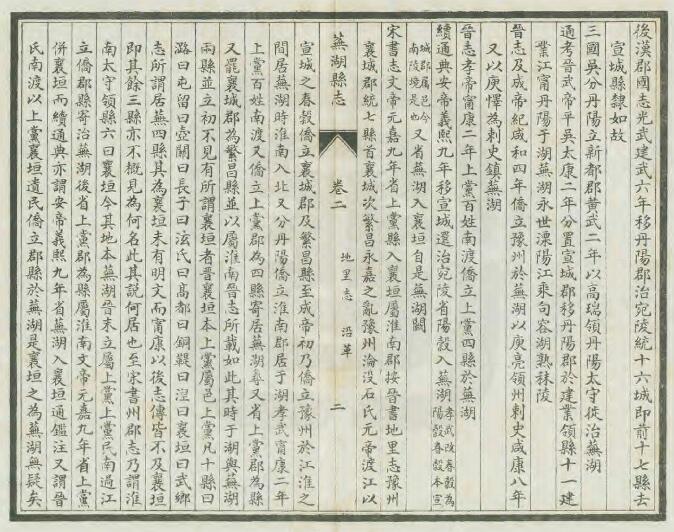 後漢郡國志光武建武六年移丹陽郡治宛陵統十六城即前十七縣去
宣城縣隸如故
三國吳分丹陽立新都郡黃武二年以高瑞領丹陽太守徙治蕪湖
通考晉武帝平吳太康二年分置宣城郡移丹陽郡於建業領縣十一建
業江甯丹陽于湖蕪湖永世溧陽江乘句容湖熟秣陵
晉志及成帝紀咸和四年僑立豫州於蕪湖以庾亮領州刺史咸康八年
又以庾懌為刺史鎮蕪湖
晉志孝帝甯康二年上黨百姓南渡僑立上黨四縣於蕪湖
續通典安帝義熙九年移宣城還治宛陵省陽穀入蕪湖孝武改春穀為陽穀春穀本宣
城郡屬邑今南陵境是也又省蕪湖入襄垣自是蕪湖闕
宋書志文帝元嘉九年省上黨縣入襄垣屬淮南郡按晉書地里志豫州
襄城郡統七縣首襄城次繁昌永嘉之亂豫州淪没石氏元帝渡江以
蕪湖縣志
卷二
地里志 沿革
二
宣城之春穀僑立襄城郡及繁昌縣至成帝初乃僑立豫州於江淮之
間居蕪湖時淮南入北又分丹陽僑立淮南郡居于湖孝武甯康二年
上黨百姓南渡又僑立上黨郡為四縣寄居蕪湖尋又省上黨郡為縣
又罷襄城郡為繁昌縣並以屬淮南晉志所載如此其時于湖與蕪湖
兩縣並立初不見有所謂襄垣者晉襄垣本上黨屬邑上黨凡十縣曰
潞曰屯留曰壺關曰長子曰泫氏曰高都曰銅鞮曰湼曰襄垣曰武鄉
志所謂居蕪四縣其為襄垣未有明文而甯康以後志傳皆不及襄垣
即其餘三縣亦不概見為何名此其說何居也至宋書州郡志乃謂淮
南太守領縣六曰襄垣今其地本蕪湖晉末立屬上黨上黨民南過江
立僑郡縣寄治蕪湖後省上黨郡為縣屬淮南文帝元嘉九年省上黨
併襄垣而續通典亦謂安帝義熙九年省蕪湖入襄垣通鑑注又謂晉
氏南渡以上黨襄垣遺民僑立郡縣於蕪湖是襄垣之為蕪湖無疑矣